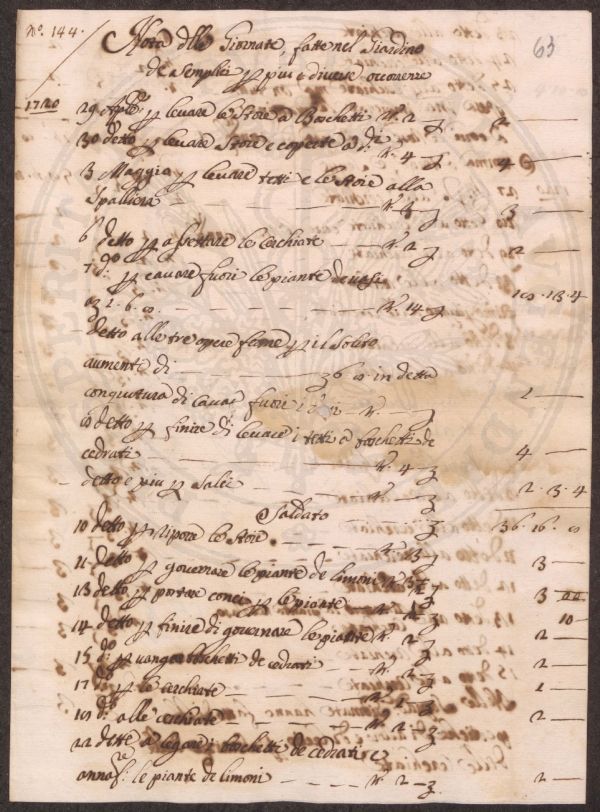 N.° 144.
63
Nota delle Giornate, fatte nel Giardino
de Semplici p più e diverse occorenze
1720
29 Aple: p levare le Stoie a Boschetti — n. 2 — 2 —
30 detto p levare Stoie e coperte a d.i n. 4 — 4 —
3 Maggio p levare tetti e le Stoie alla
Spalliera — n. 3 — 3 —
6 detto p assettare le Cerchiate — n. 2 — 2 —
7 d.o p cavare fuori le piante de vasi
— n. 14 — 10.13.4
detto alle tre opere p il solito
aumento di — in detta
congiuntura di cavar fuori i — 1 —
detto p finire di levare i tetti a boschetti de
cedrati — n. 4 — 4 —
detto e più p — 2.3.4
Saldato — 36.16.
10 detto p riporre le Stoie — n. 3 — 3 —
11 detto p governare le piante de limoni n. 3 — 3 —
13 detto p portare conci p le piante — n. — 10 —
14 detto p finire di governare le piante n. 2 — 2 —
15 d.o p vangare boschetti de cedrati — n. 2 — 2 —
17 d.o p le cerchiate — n. 1 — 1 —
19 d.o alle cerchiate — n. 2 — 2 —
22 dette a legare i boschetti de cedrati e
le piante de limoni — n. 2 — 2 —